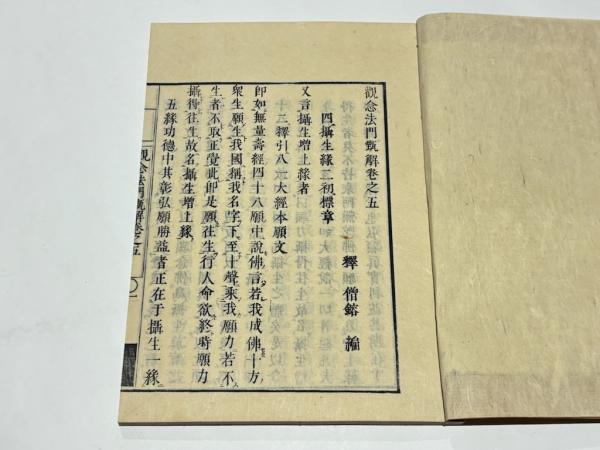 觀念法門甄解卷之五
釋 僧鎔 編
四攝生緣三初標章
又言攝生增上緣者
十三釋引八一大經本願文
即如無量壽經四十八願中說佛言若我成佛十方
衆生願生我國稱我名字下至十聲乘我願力若不
生者不取正覺此即是願往生行人命欲終時願力
攝得往生故名攝生增上緣
五緣功德中其彰弘願勝益者正在于攝生一緣
觀念法門甄解卷之五